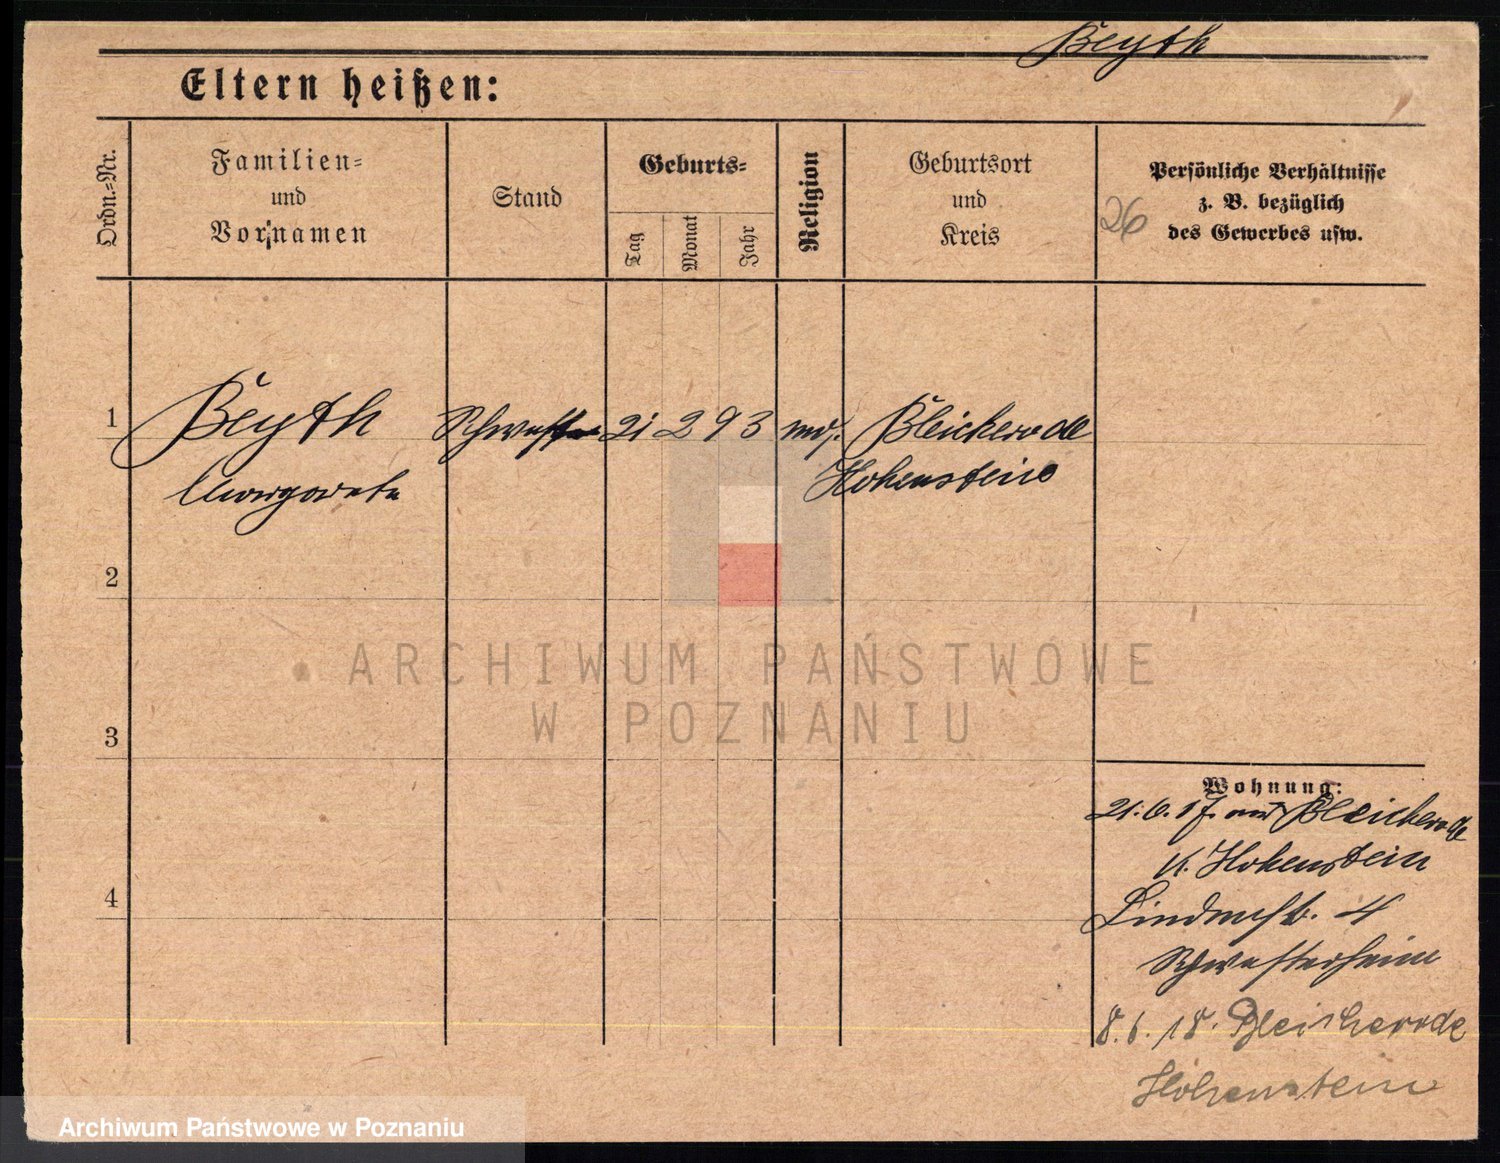 Beyth
Eltern heißen:
Ordn.=Nr.
Familien=
und
Vornamen
Stand
Geburts=
Tag
Monat
Jahr
Religion
Geburtsort
und
Kreis
26
Persönliche Verhältnisse
z. B. bezüglich
des Gewerbes usw.
1
Beyth
Margarete
Schwester
21 2 93
Bleicherode
Hohenstein
2
3
4
Wohnung:
21.6.17. aus Bleicherode
K. Hohenstein
Lindenstr. 4
Schwesterheim
8.6.18. Bleicherode
Hohenstein
ARCHIWUM PAŃSTWOWE
W POZNANIU
Archiwum Państwowe w Poznaniu